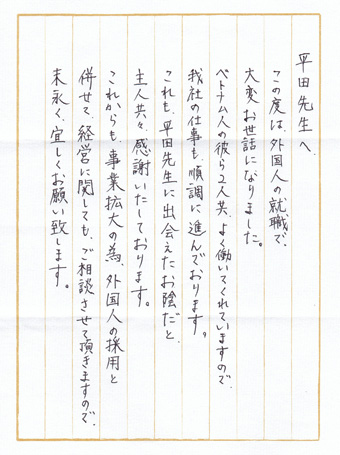 平田先生へ、
この度は、外国人の就職で、
大変お世話になりました。
ベトナム人の彼ら2人共、よく働いてくれていますので、
我社の仕事も、順調に進んでおります。
これも、平田先生に出会えたお陰だと、
主人共々、感謝いたしております。
これからも、事業拡大の為、外国人の採用と
併せて、経営に関しても、ご相談させて頂きますので、
末永く、宜しくお願い致します。